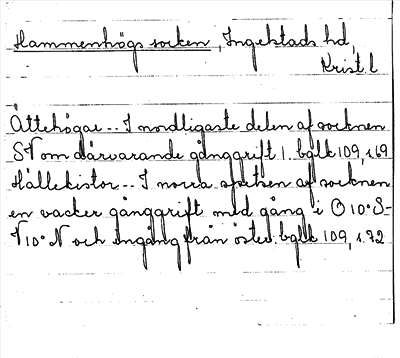 Hammenhögs socken, Ingelstads hd,
Krist.l
Ättehögar -- I nordligaste delen af socknen
SV om därvarande gånggrift 1. bglk 109, s.69
Hällekistor -- I norra spetsen af socknen
en vacker gånggrift med gång i O 10° S-
V 10° N och ingång från öster. bglk 109, s.72